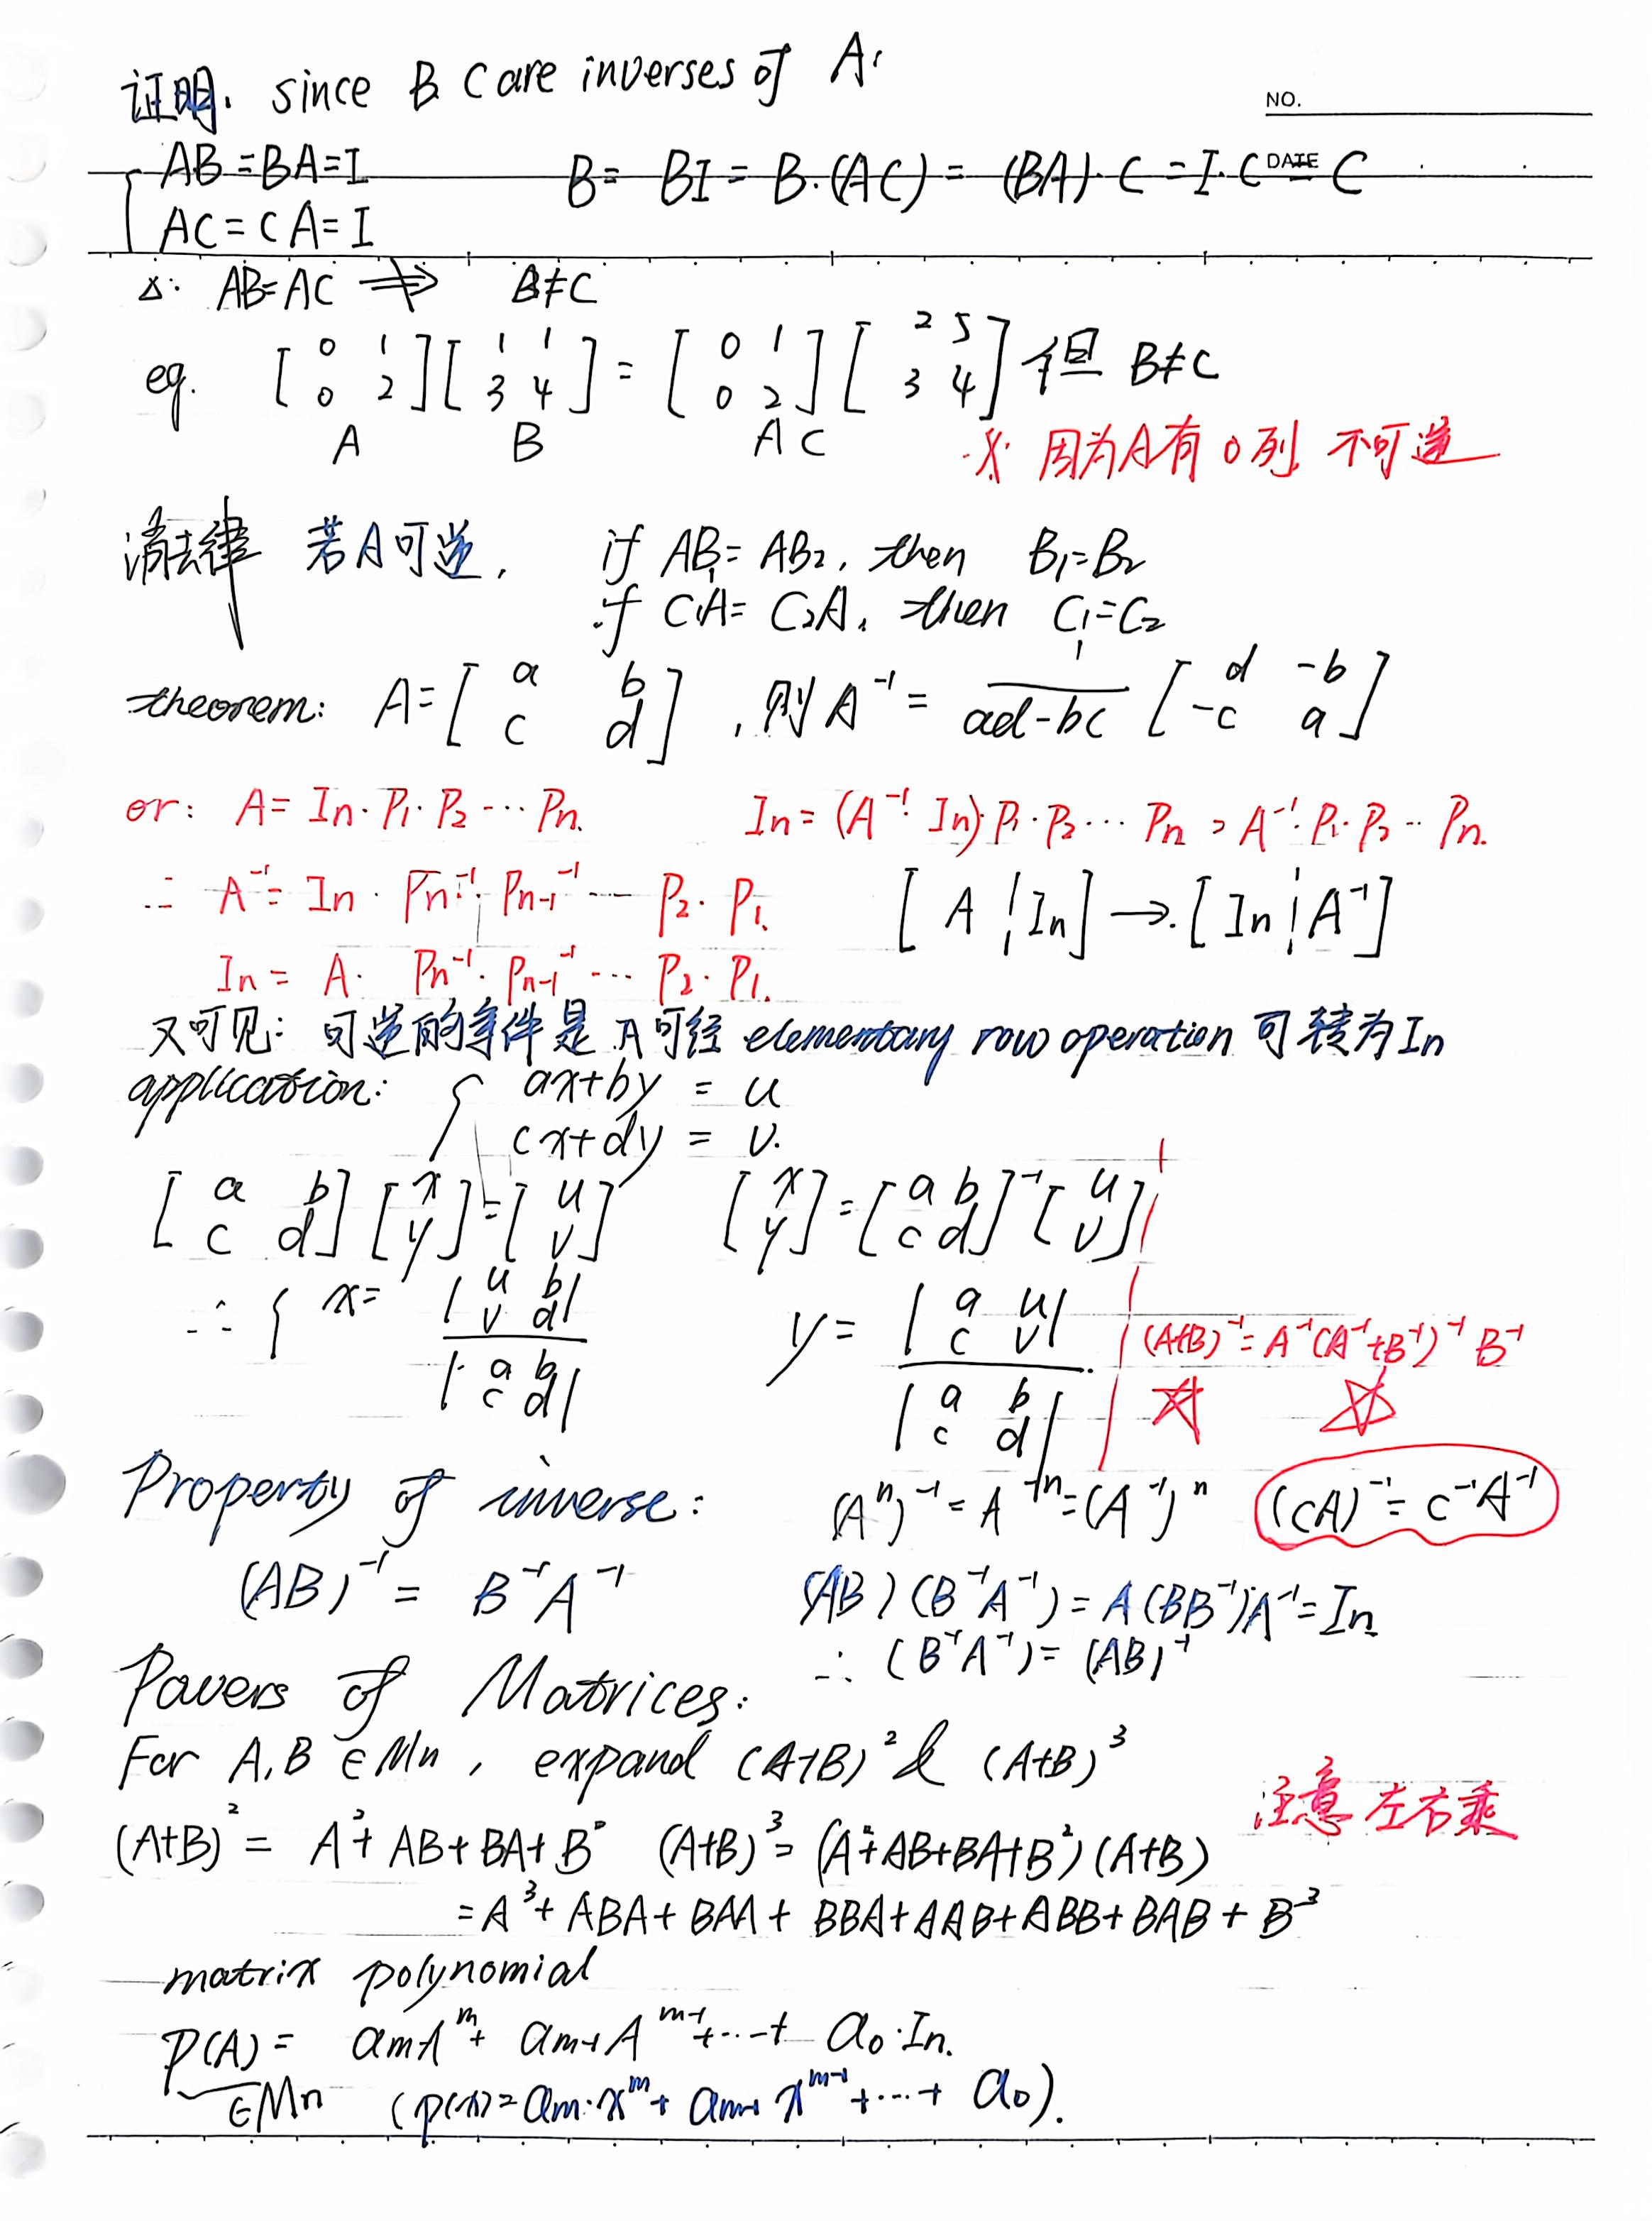 证明. since B C are inverses of A.
NO.
AB=BA=I B= BI = B·(AC) = (BA)·C = I·C = C
DATE
AC=CA=I
△: AB=AC ⇏ B≠C
eg. [0 1; 0 2][1 1; 3 4] = [0 1; 0 2][2 5; 3 4] 但 B≠C
A B A C
※ 因为A有0列 不可逆
消去律 若A可逆, if AB₁=AB₂, then B₁=B₂
if C₁A=C₂A, then C₁=C₂
theorem: A=[a b; c d], 则 A⁻¹ = 1/(ad-bc) [d -b; -c a]
or: A= In·P₁·P₂···Pn. In=(A⁻¹·In)·P₁·P₂···Pn = A⁻¹·P₁·P₂··Pn.
∴ A⁻¹= In·Pn⁻¹·Pn-1⁻¹···P₂·P₁. [A ¦ In] → [In ¦ A⁻¹]
In = A· Pn⁻¹·Pn-1⁻¹···P₂·P₁.
又可见: 可逆的条件是 A可经 elementary row operation 可转为In
application: { ax+by = u
cx+dy = v.
[a b; c d][x; y]=[u; v] [x; y]=[a b; c d]⁻¹[u; v]
∴ { x= |u b; v d| / |a b; c d| y= |a u; c v| / |a b; c d|
(A+B)⁻¹=A⁻¹(A⁻¹+B⁻¹)⁻¹B⁻¹
☆ ☆
Property of inverse: (Aⁿ)⁻¹=A⁻ⁿ=(A⁻¹)ⁿ (cA)⁻¹=c⁻¹A⁻¹
(AB)⁻¹= B⁻¹A⁻¹ (AB)(B⁻¹A⁻¹)=A(BB⁻¹)A⁻¹=In
∴ (B⁻¹A⁻¹)=(AB)⁻¹
Powers of Matrices:
For A,B ∈Mn, expand (A+B)² & (A+B)³
注意左右乘
(A+B)² = A²+AB+BA+B² (A+B)³=(A²+AB+BA+B²)(A+B)
=A³+ABA+BAA+BBA+AAB+ABB+BAB+B³
matrix polynomial
P(A)= amA^m+ am-1A^m-1+···+ a₀·In.
∈Mn (p(x)=am·x^m+ am-1 x^m-1+···+ a₀).